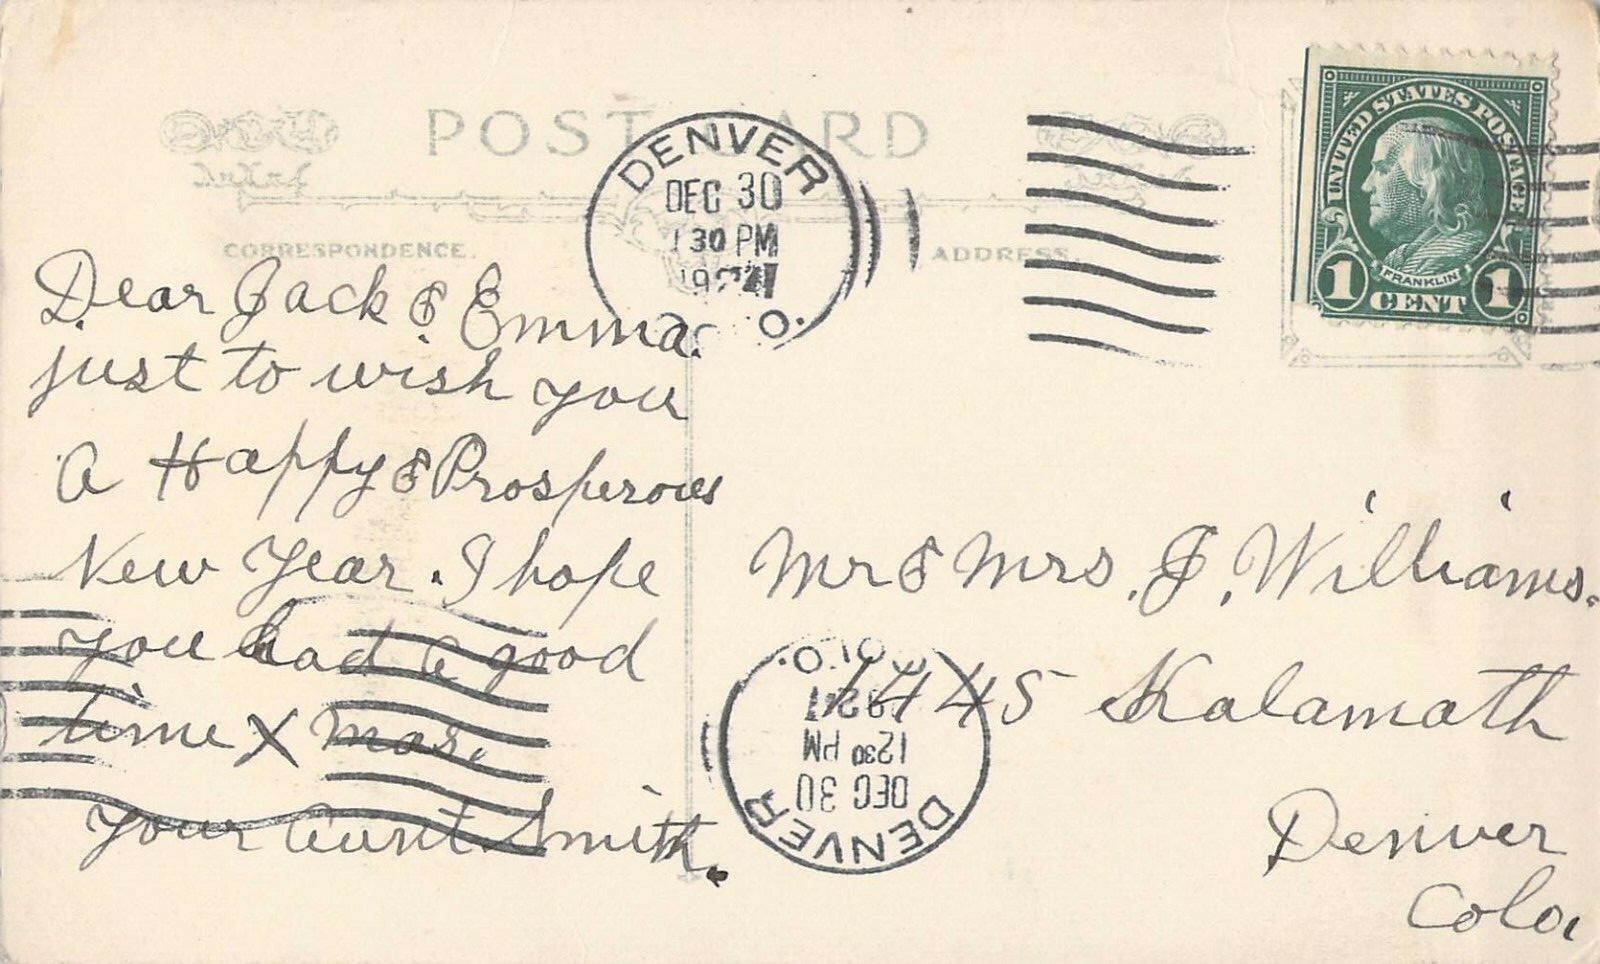 POST CARD
CORRESPONDENCE.
ADDRESS.
DENVER
DEC 30
30 PM
O.
UNITED STATES POSTAGE
FRANKLIN
1 CENT 1
Dear Jack & Emma.
just to wish you
A Happy & Prosperous
New Year. I hope
you had a good
time X mas.
your Aunt Smith.
Mr & Mrs. J. Williams.
1445 Kalamath
Denver
Colo.
DENVER
DEC 30
1230 PM
COLO.